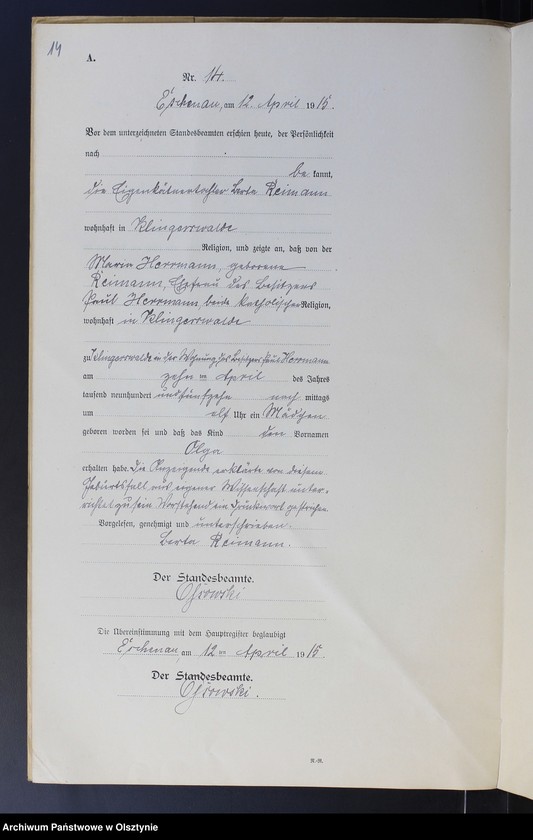 14
A.
Nr. 14.
Eschenau, am 12. April 1915.
Vor dem unterzeichneten Standesbeamten erschien heute, der Persönlichkeit
nach
be kannt,
die Eigenkätnertochter Berta Reimann
wohnhaft in Klingerswalde
Religion, und zeigte an, daß von der
Maria Herrmann, geborene
Reimann, Ehefrau des Besitzers
Paul Herrmann, beide katholischer Religion,
wohnhaft in Klingerswalde
zu Klingerswalde in der Wohnung des Besitzers Paul Herrmann
am zehnten April des Jahres
tausend neunhundert undfünfzehn nach mittags
um elf Uhr ein Mädchen
geboren worden sei und daß das Kind den Vornamen
Olga
erhalten habe. Die Anzeigende erklärte von diesem
Geburtsfall aus eigener Wissenschaft unter-
richtet zu sein. Vorstehend ein Druckwort gestrichen.
Vorgelesen, genehmigt und unterschrieben.
Berta Reimann.
Der Standesbeamte.
Die Übereinstimmung mit dem Hauptregister beglaubigt
Eschenau, am 12ten April 1915.
Der Standesbeamte.
A.-R.
Archiwum Państwowe w Olsztynie